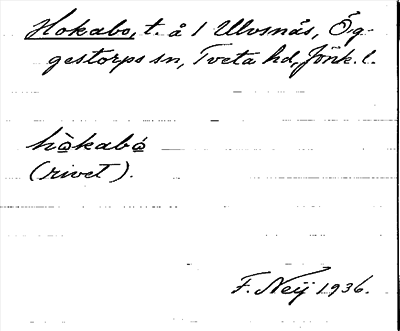 Hokabo, t. å 1 Ulvsnäs, Ög-
gestorps sn, Tveta hd, Jönk. l.
hòkabó
(rivet).
F. Neij 1936.